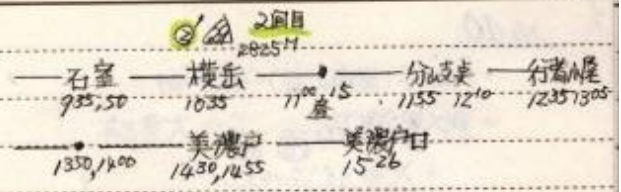 ② 2回目
2825M
石室 — 横岳 — • — 分岐点 — 行者小屋
935,50 1035 11⁰⁰,15 1155 12¹⁰ 1235 1305
• — 美濃戸 — 美濃戸口
1350,1400 1430,1455 15²⁶